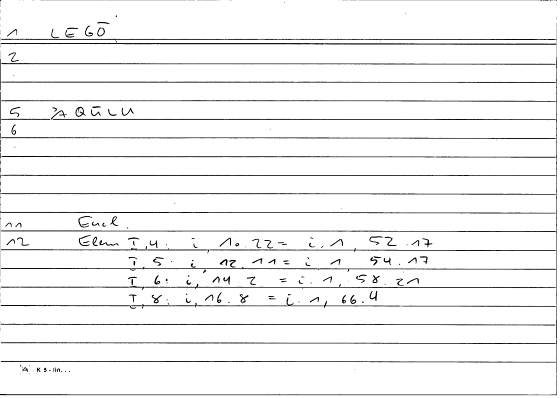 1 LEGŌ
2
5 ʾAQŪLU
6
11 Eucl.
12 Elem I,4: i, 10.22 = i.1, 52.17
I, 5: i, 12.11 = i.1, 54.17
I, 6: i, 14.2 = i.1, 58.21
I, 8: i, 16.8 = i.1, 66.4
K 5 - lin...